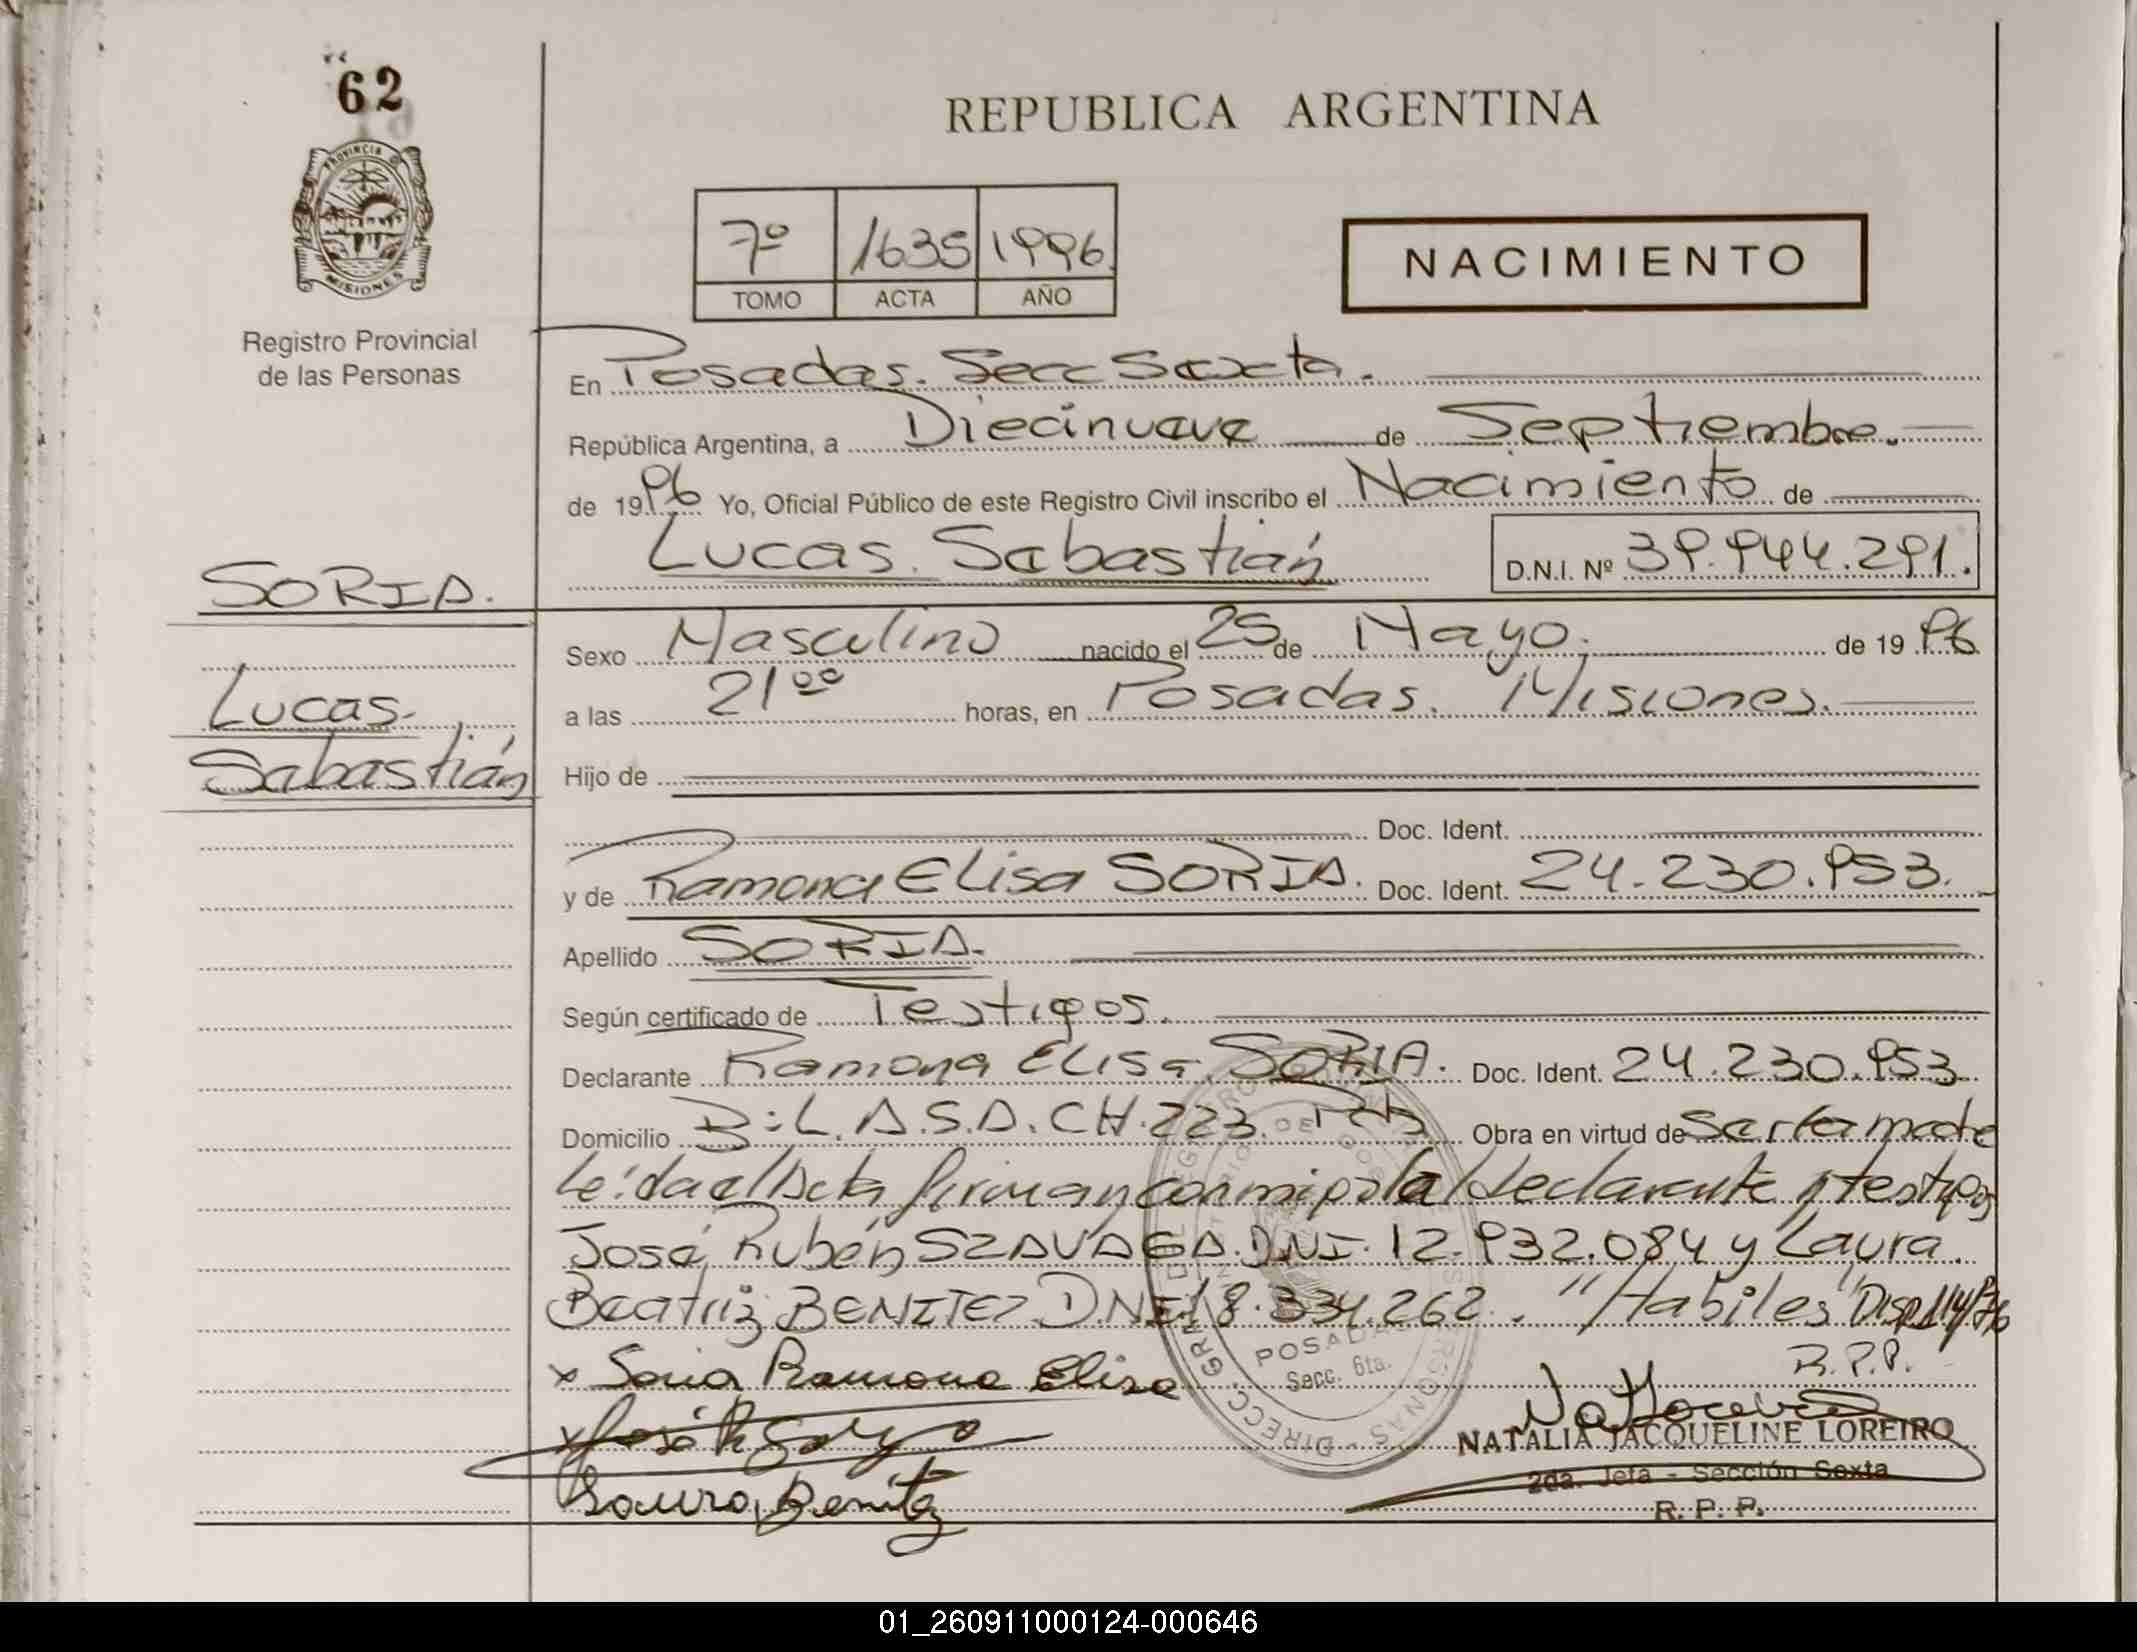 62
PROVINCIA DE MISIONES
Registro Provincial
de las Personas
REPUBLICA ARGENTINA
7º 1635 1996
TOMO ACTA AÑO
NACIMIENTO
En Posadas. Secc Sexta.
República Argentina, a Diecinueve de Septiembre.
de 1996 Yo, Oficial Público de este Registro Civil inscribo el Nacimiento de
Lucas. Sebastián D.N.I. Nº 39.944.291.
SORIA.
Lucas.
Sebastián
Sexo Masculino nacido el 25 de Mayo. de 1996
a las 21⁰⁰ horas, en Posadas. Misiones.
Hijo de
Doc. Ident.
y de Ramona Elisa SORIA. Doc. Ident. 24.230.953.
Apellido SORIA.
Según certificado de Testigos.
Declarante Ramona Elisa SORIA. Doc. Ident. 24.230.953
Domicilio B: L.A.S.A. CH. 223. Pdas Obra en virtud de ser la madre
Leída el Acta firman conmigo la declarante y testigos
José Rubén SZAVAGA. DNI. 12.932.084 y Laura.
Beatriz BENITEZ D.NI 18.334.262. "Habiles"
R.P.P.
x Soria Ramona Elisa
Laura Benitez
POSADAS
Secc. 6ta.
NATALIA JACQUELINE LOREIRO
2da. Jefa - Sección Sexta
R. P. P.
01_260911000124-000646